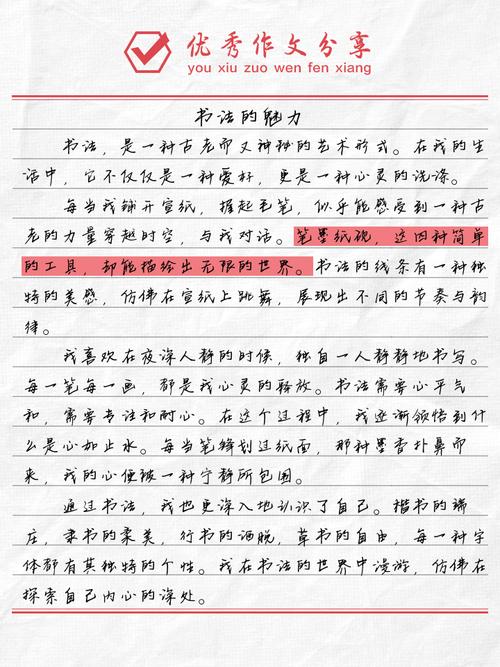 优秀作文分享
you xiu zuo wen fen xiang
书法的魅力
书法，是一种古老而又神秘的艺术形式。在我的生
活中，它不仅仅是一种爱好，更是一种心灵的洗涤。
每当我铺开宣纸，握起毛笔，似乎能感受到一种古
老的力量穿越时空，与我对话。笔墨纸砚，这四种简单
的工具，却能描绘出无限的世界。书法的线条有一种独
特的美感，仿佛在宣纸上跳舞，展现出不同的节奏与韵
律。
我喜欢在夜深人静的时候，独自一人静静地书写。
每一笔每一画，都是我心灵的释放。书法需要心平气
和，需要专注和耐心。在这个过程中，我逐渐领悟到什
么是心如止水。每当笔锋划过纸面，那种墨香扑鼻而
来，我的心便被一种宁静所包围。
通过书法，我也更深入地认识了自己。楷书的端
庄，隶书的柔美，行书的洒脱，草书的自由，每一种字
体都有其独特的个性。我在书法的世界中漫游，仿佛在
探索自己内心的深处。